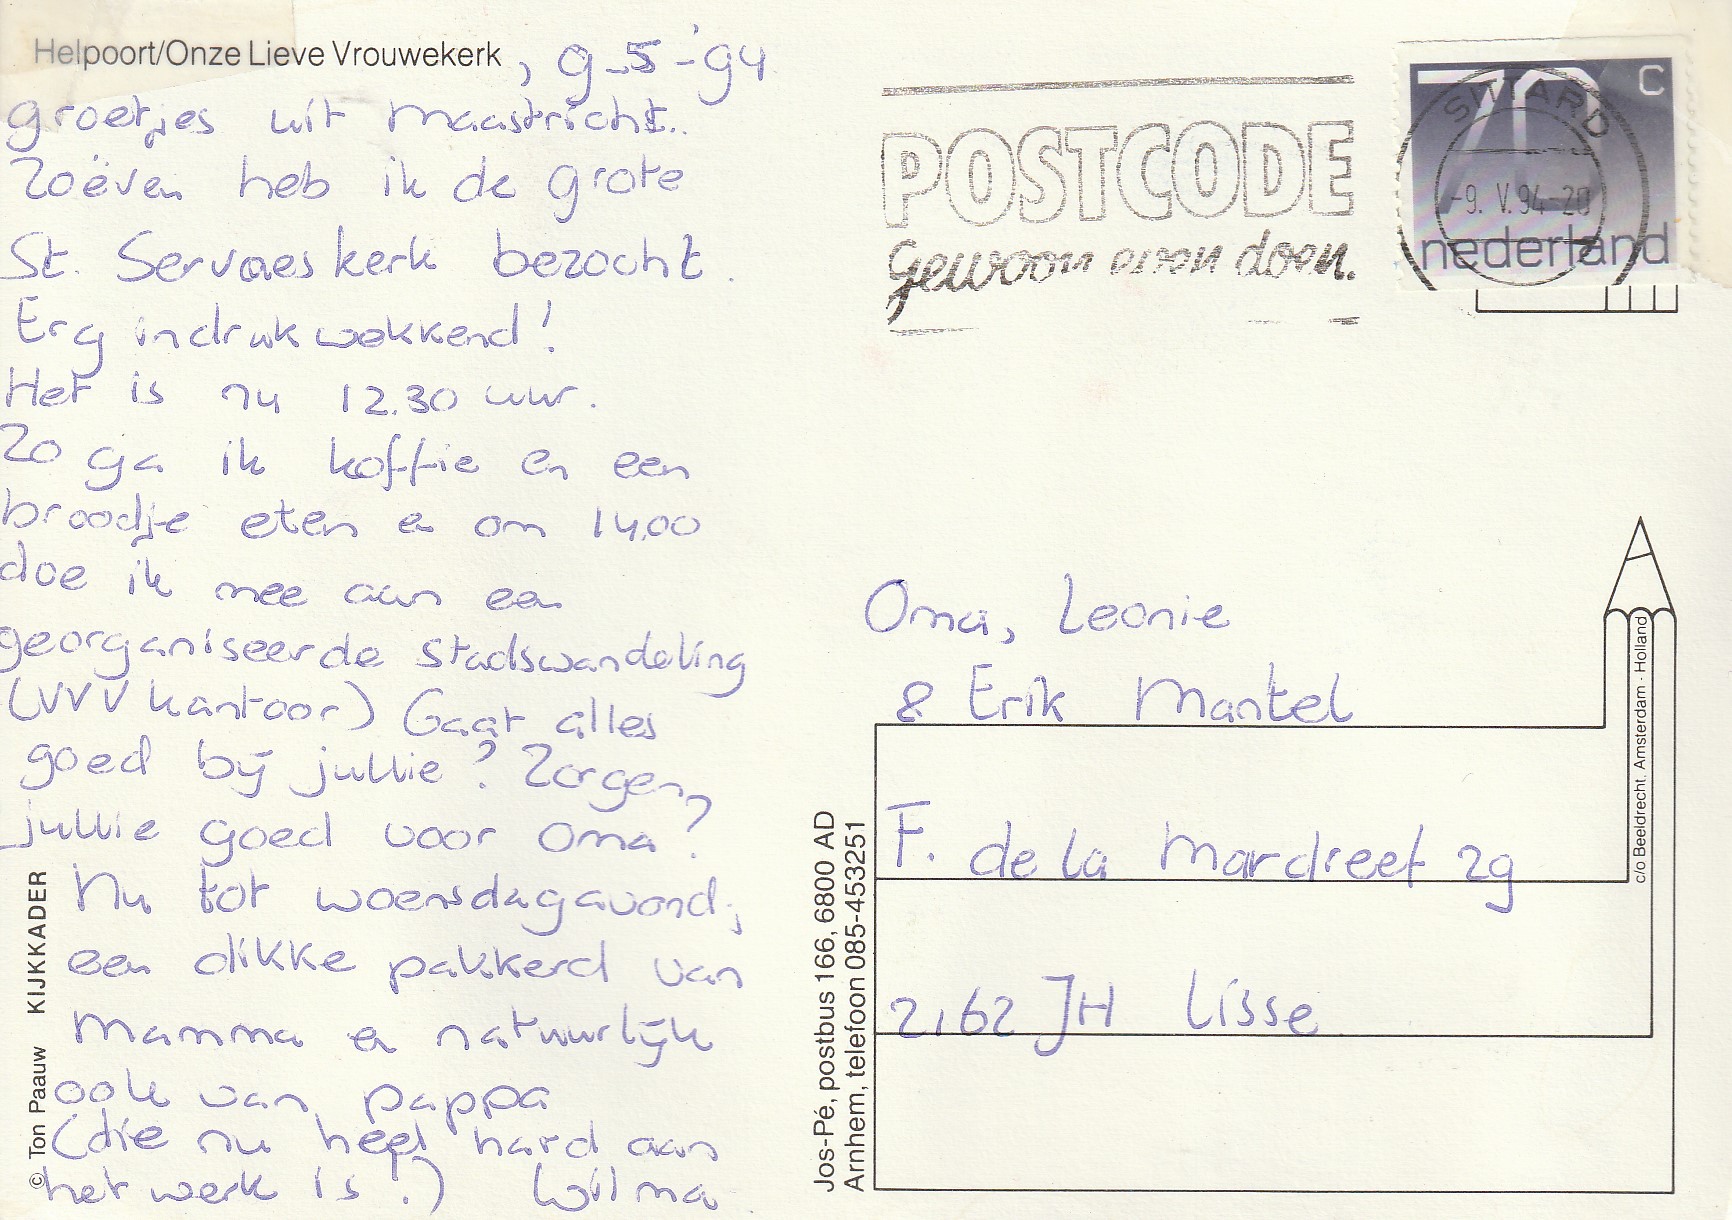 Helpoort/Onze Lieve Vrouwekerk , 9-5-'94
groetjes uit Maastricht..
Zoëven heb ik de grote
St. Servaeskerk bezocht.
Erg indrukwekkend!
Het is nu 12.30 uur.
Zo ga ik koffie en een
broodje eten en om 14.00
doe ik mee aan een
georganiseerde stadswandeling
(VVV kantoor) Gaat alles
goed bij jullie? Zorgen
jullie goed voor Oma?
Nu tot woensdagavond;
een dikke pakkerd van
Mamma en natuurlijk
ook van pappa
(die nu heel hard aan
het werk is!) Wilma
© Ton Paauw KIJKKADER
Jos-Pé, postbus 166, 6800 AD
Arnhem, telefoon 085-453251
POSTCODE
gewoon even doen.
70 c
nederland
SITTARD
-9. V. 94-20
Oma, Leonie
& Erik Mantel
F. de la Mardreef 29
2162 JH Lisse
c/o Beeldrecht. Amsterdam - Holland